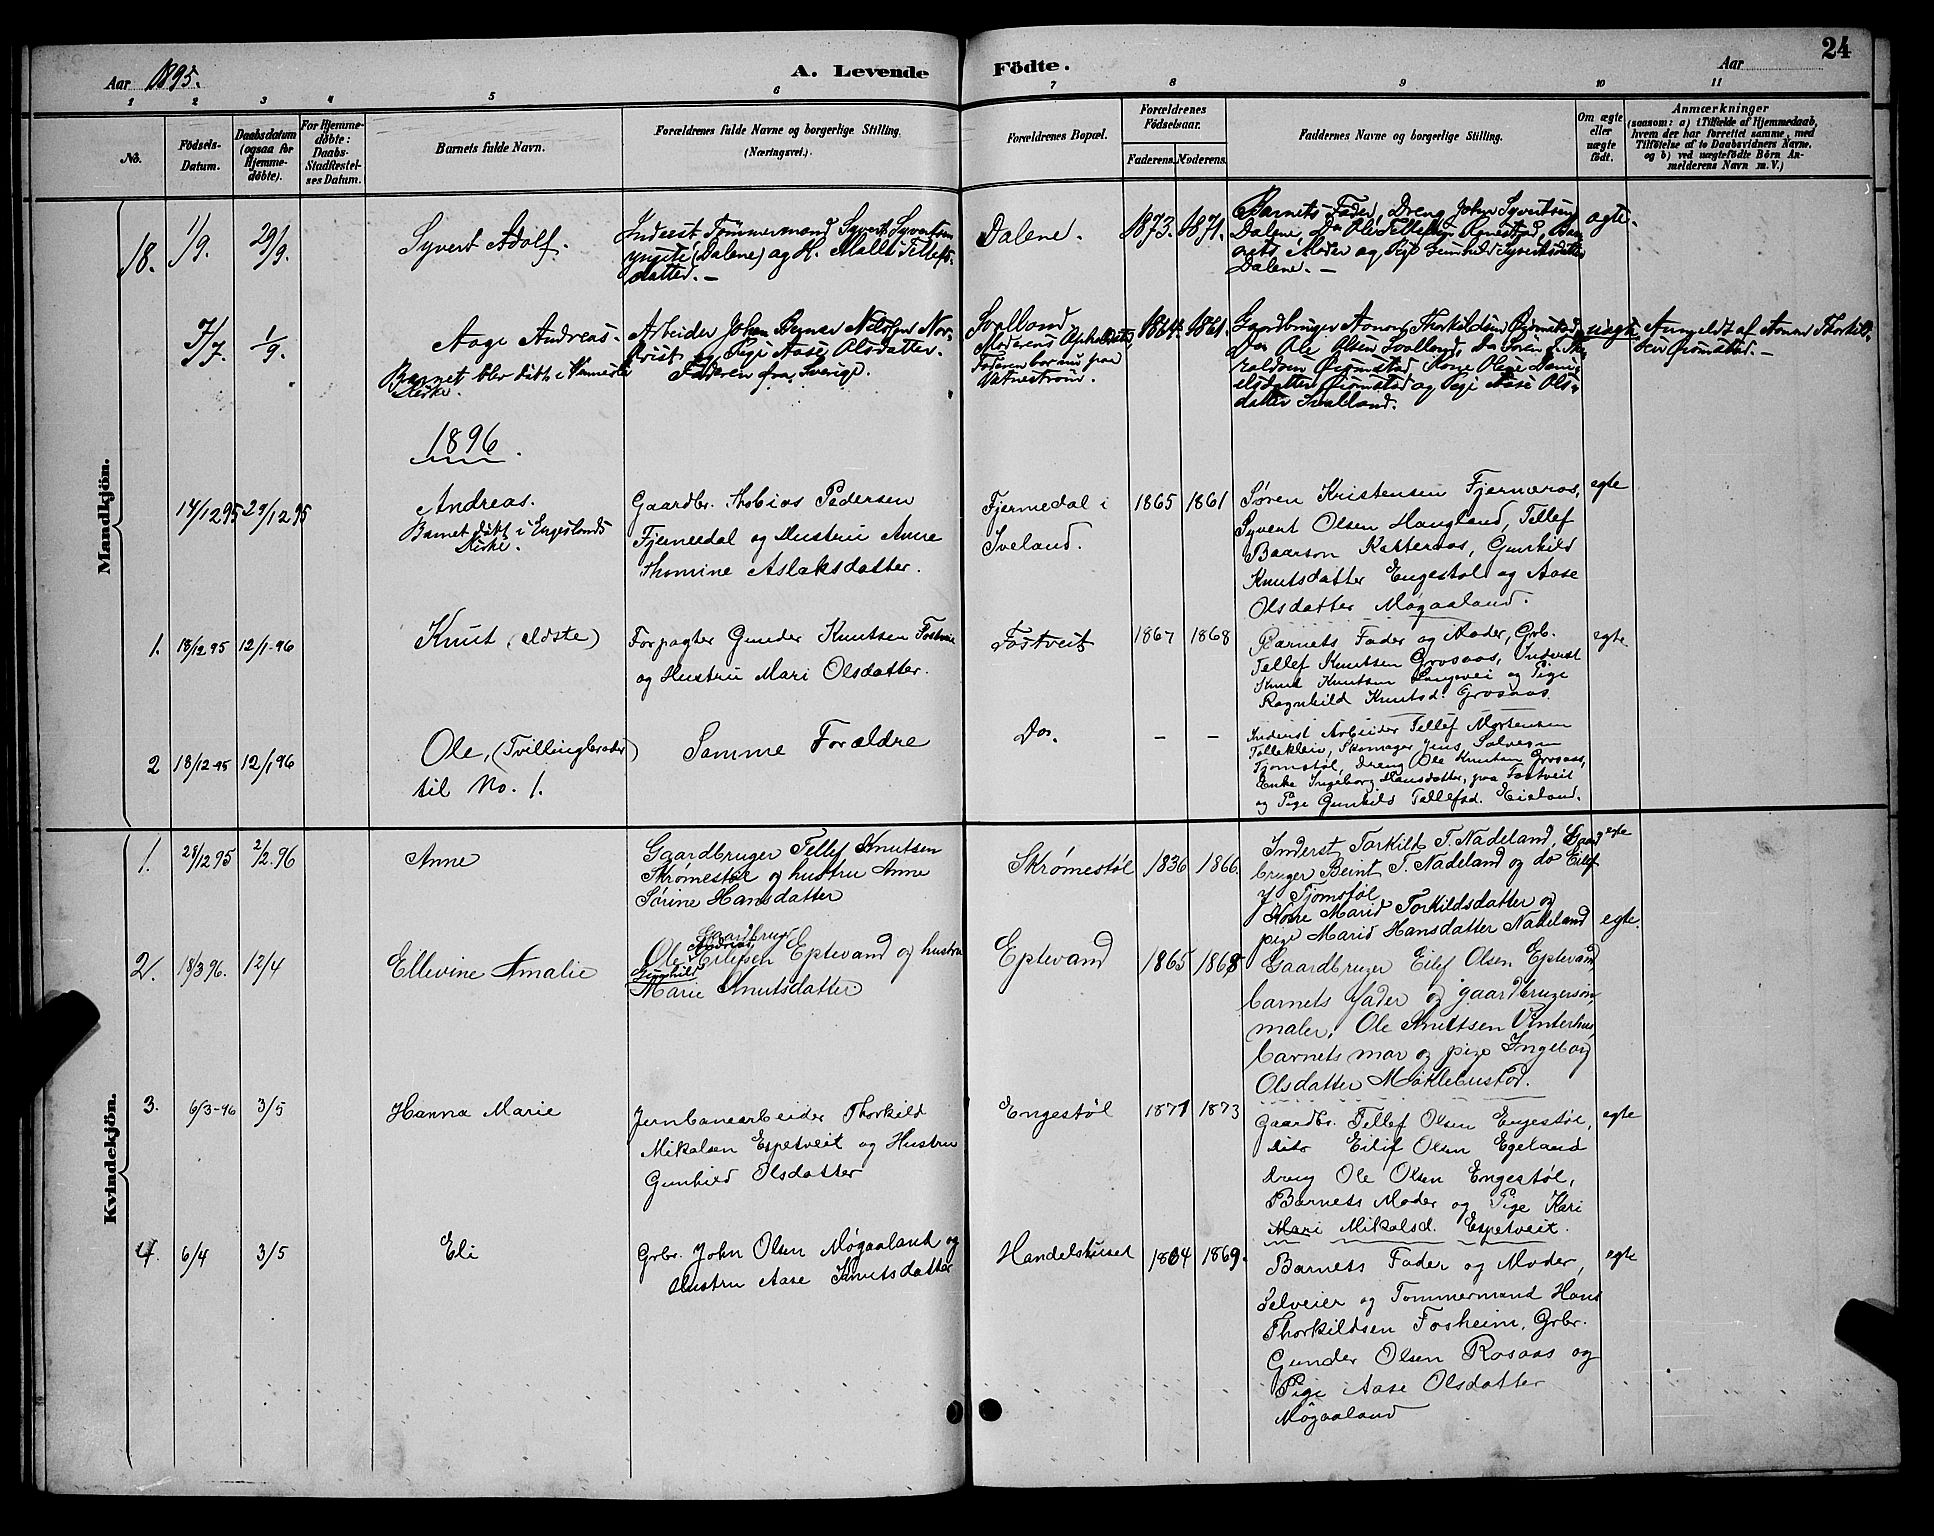 Aar 1895.
A. Levende
Födte.
Aar
24
1 2 3 4 5 6 7 8 9 10 11
No.
Födsels-
Datum.
Daabsdatum
(ogsaa for
Hjemme-
døbte).
For Hjemme-
døbte:
Daabs-
Stadfæstel-
ses Datum.
Barnets fulde Navn.
Forældrenes fulde Navne og borgerlige Stilling.
(Næringsvei.)
Forældrenes Bopæl.
Forældrenes
Födselsaar.
Faderens. Moderens.
Faddernes Navne og borgerlige Stilling.
Om ægte
eller
uægte
født.
Anmærkninger
(saasom: a) i Tilfælde af Hjemmedaab,
hvem der har forrettet samme, med
Tilföielse af to Daabsvidners Navne,
og b) ved uægtefödte Börn An-
melderens Navn m. V.)
Mandkjön.
18. 1/9. 29/9.
Syvert Adolf.
Inderst Tømmermand Syvert Syvertsen
yngste (Dalene) og H. Malli Tellefs-
datter. —
Dalene.
1873. 1871.
Barnets Fader, Dreng John Syvertsen
Dalene, Do Ole Tellefsen
nets Moder og Pige Gunhild Syvertsdatter
Dalene. —
ægte.
7/7. 1/9.
Aage Andreas.
Barnet blev døbt i Vennesla
Kirke.
Arbeider Johan Nilsen
og Pige Aase Olsdatter.
Faderen fra Sverige.
Svalland
Moderens Opholdssted,
Faderen bor nu paa
Vatnestrøm.
1864. 1861.
Gaardbruger Aanon Thorkildsen Øiømstad,
Do Ole Olsen Svalland, Do Søren
Øiømstad, Kone Olene Dani-
elsdatter Øiømstad og Pige Aase Ols-
datter Svalland.
uægte
Anmeldt af Aanon Thorkild-
sen Øiømstad. —
1896.
14/12 95 29/12 95
Andreas.
Barnet døbt i Engeslands
Kirke.
Gaardbr. Thobias Pedersen
Fjermedal og Hustru Anne
Thomine Aslaksdatter.
Fjermedal i
Iveland.
1865 1861
Søren Kristensen Fjermeros,
Syvert Olsen Haugland, Tellef
Baarson Katteraas, Gunhild
Knutsdatter Engestøl og Aase
Olsdatter Møgaaland.
egte
1. 18/12 95 12/1-96
Knut (ældste)
Forpagter Gunder Knutsen Fostvei
og Hustru Mari Olsdatter.
Fostveit
1867 1868
Barnets Fader og Moder, Grb.
Tellef Knutsen Grosaas, Inderst
Knut Knutsen Langevei og Pige
Ragnhild Knutsd. Grosaas.
egte
2 18/12-95 12/1 96
Ole, (Tvillingbroder)
til No. 1.
Samme Forældre
Do.
— —
Inderst Arbeider Tellef Mortensen
Telleklein, Skomager Jens Salvesen
Tjomstøl, Dreng Ole Knutsen Grosaas,
Enke Ingeborg Hansdatter, paa Fostveit
og Pige Gunhild Tellefsd. Heisland.
Kvindekjön.
1. 28/12 95 2/2. 96
Anne
Gaardbruger Tellef Knutsen
Skrømestøl og hustru Anne
Sørine Hansdatter
Skrømestøl
1836 1866.
Inderst Torkild T. Nadeland, Gaard
bruger Beint T. Nadeland og do Eilef
J Tjomstøl
Kone Marid Torkildsdatter og
pige Marid Hansdatter Nadeland
egte
2. 18/3 96. 12/4
Ellevine Amalie
Gaardbruger
Andreas
Ole Eilefsen Eptevand og hustru
Gunhild
Marie Knutsdatter.
Eptevand
1865 1868
Gaardbruger Eilef Olsen Eptevand,
barnets fader og gaardbrugersøn,
maler, Ole Knutsen Vinterhus,
barnets mor og pige Ingeborg
Olsdatter Møklebustad.
egte.
3. 6/3-96 3/5
Hanna Marie
Jernbanearbeider Thorkild
Mikalsen Espetveit og Hustru
Gunhild Olsdatter
Engestøl
1871 1873
Gaardbr. Tellef Olsen Engestøl,
dito Eilif Olsen Egeland
Dreng Ole Olsen Engestøl,
Barnets Moder og Pige Kari
Mari Mikalsd. Espetveit.
egte
4. 6/4 3/5
Eli
Grbr. John Olsen Møgaaland og
Hustru Aase Knutsdatter
Handelshuset
1864 1869.
Barnets Fader og Moder,
Selveier og Tømmermand Hans
Thorkildsen Fosheim, Grbr.
Gunder Olsen Rosaas og
Pige Aase Olsdatter
Møgaaland
egte